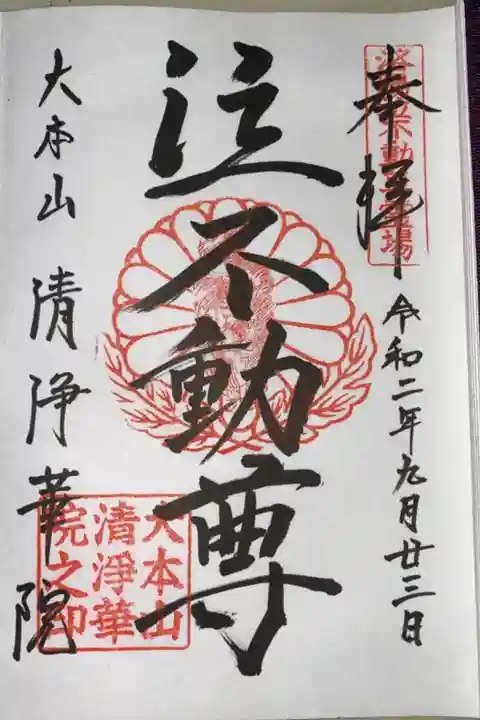 奉拝
令和二年九月廿三日
泣不動尊
大本山 清浄華院
大本山
清淨華
院之印